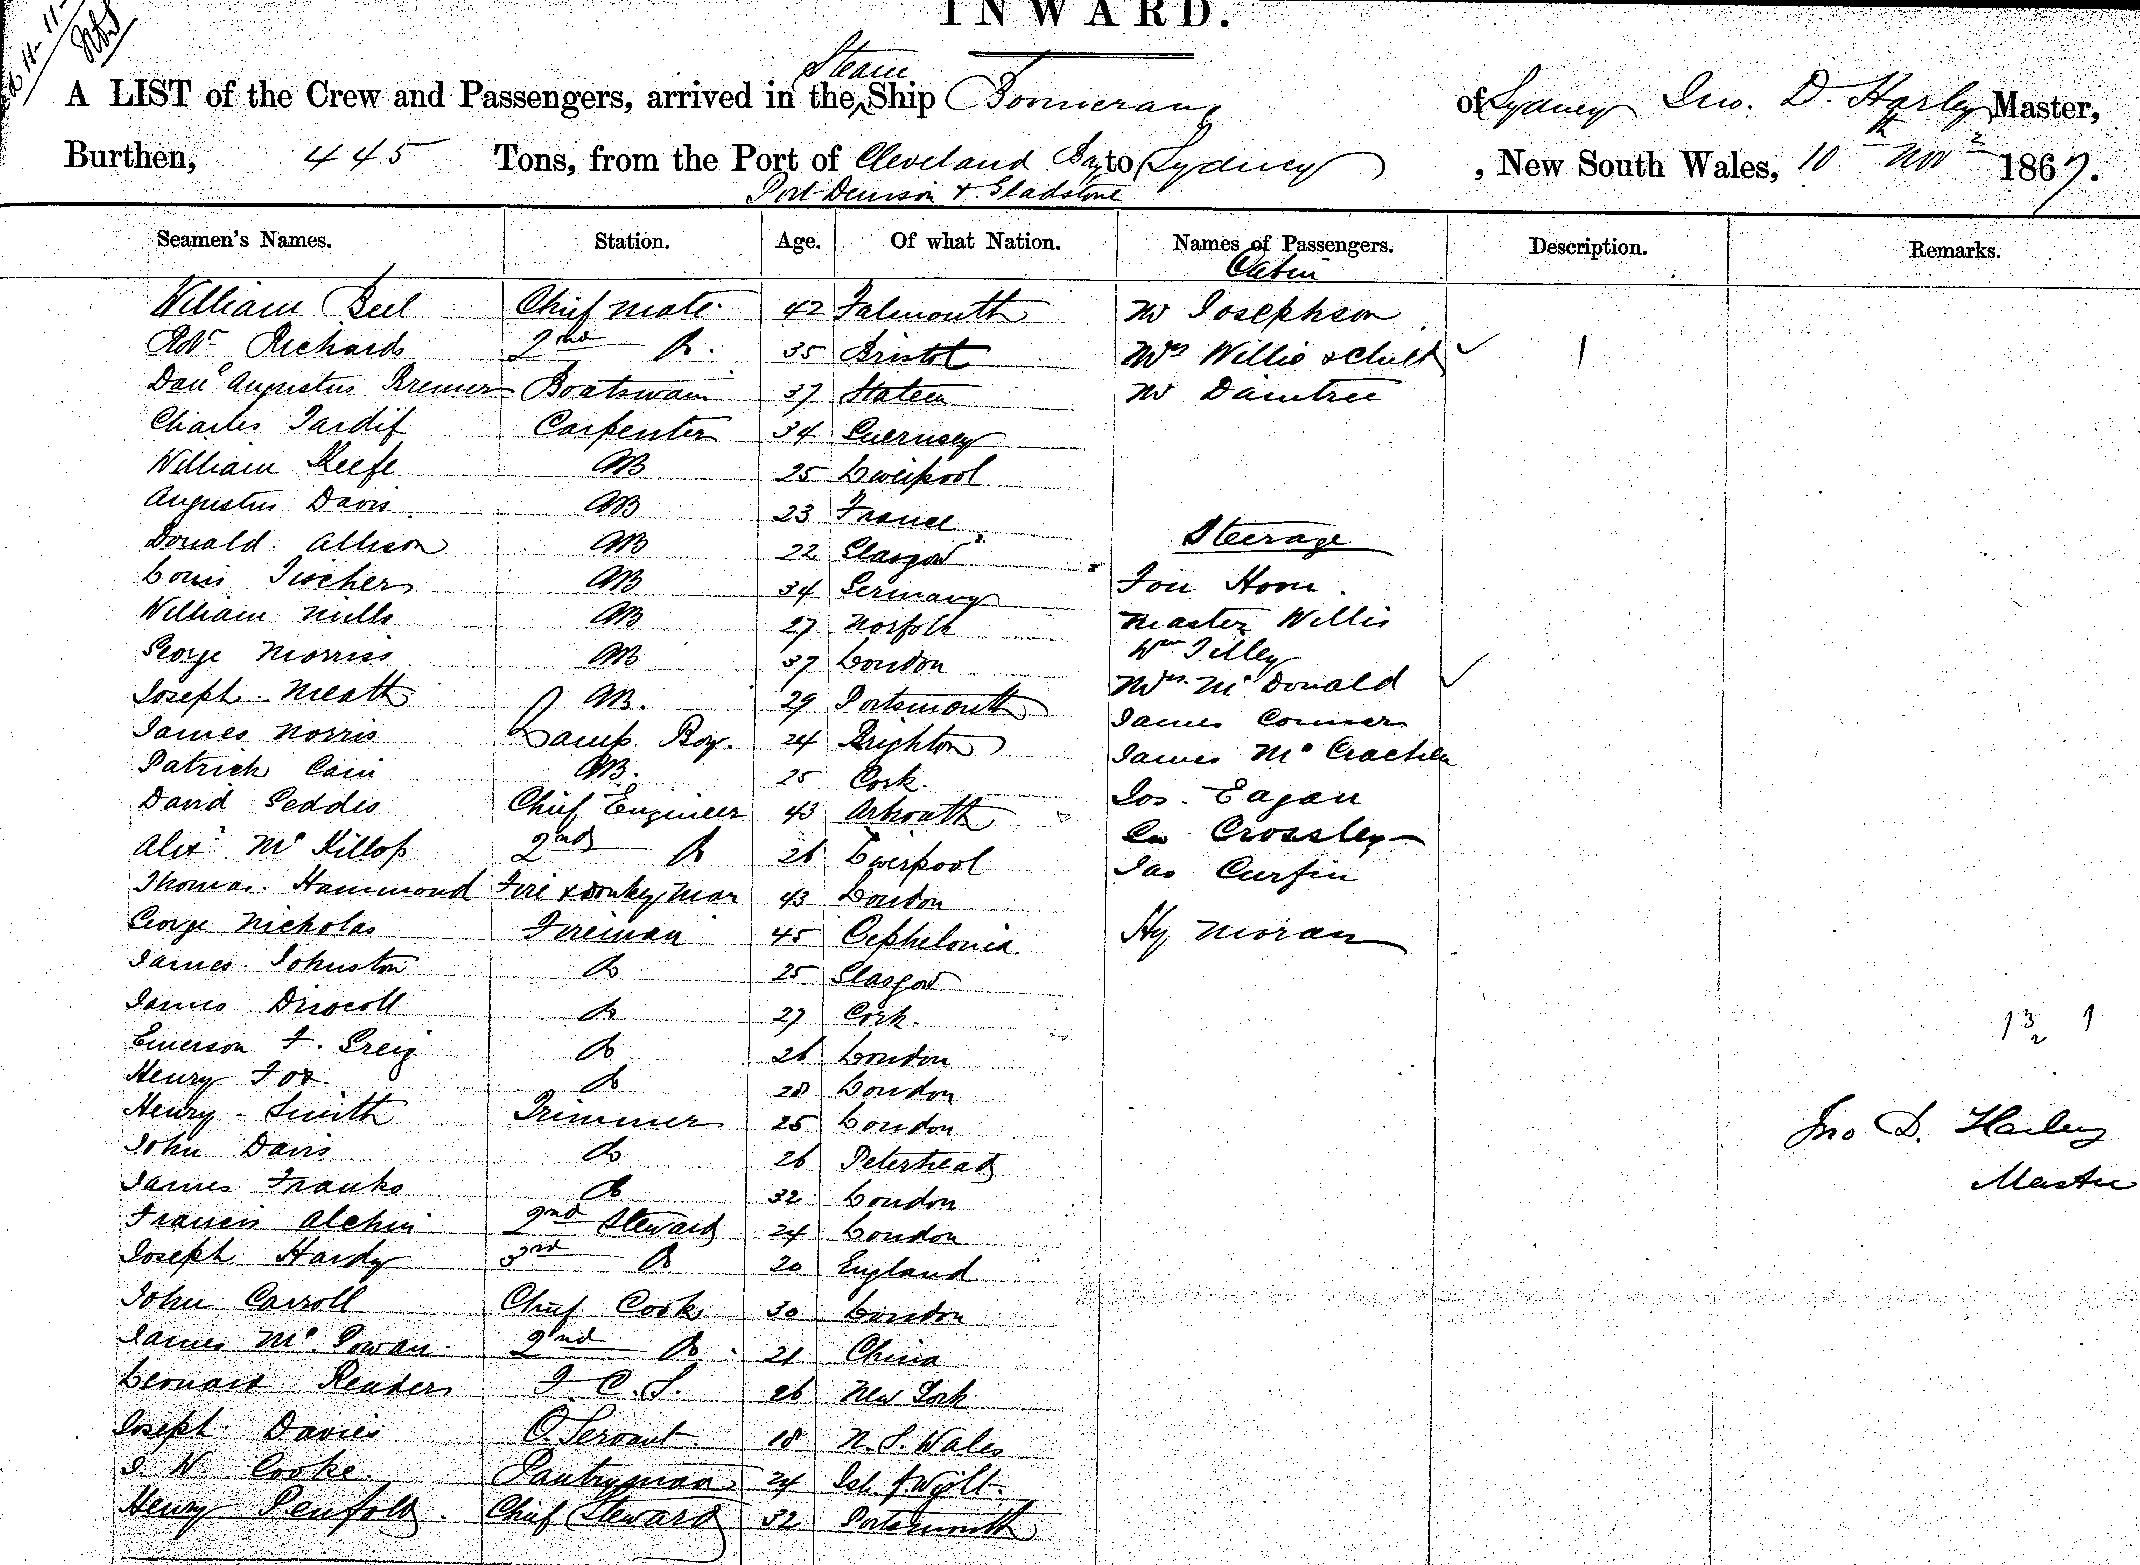 INWARD.
A LIST of the Crew and Passengers, arrived in the Steam Ship Boomerang of Sydney Jno. D. Harley Master,
Burthen, 445 Tons, from the Port of Cleveland Bay to Sydney, New South Wales, 10th Novr 1867.
Port Denison & Gladstone
Seamen's Names. Station. Age. Of what Nation. Names of Passengers. Description. Remarks.
Cabin
William Bell Chief Mate 42 Falmouth Mr Josephson
Robt Richards 2nd Do. 35 Bristol Mrs Willis & Child
Danl Augustus Bremer Boatswain 37 Statem Mr Daintree
Charles Tardif Carpenter 34 Guernsey
William Keefe AB 25 Liverpool
Augustus Davis AB 23 France
Steerage
Donald Allison AB 22 Glasgow
Louis Fischer AB 34 Germany Fou Hoon.
William Mills AB 27 Norfolk Master Willis
George Morriss AB 37 London Wm Tilley
Joseph Meath AB. 29 Portsmouth Mrs McDonald
James Norris Lamp Boy. 24 Brighton James Conner
Patrick Cain AB. 25 Cork. James McCracken
David Geddes Chief Engineer 43 Arbroath Jos. Eagan
Alexr McKillop 2nd Do 26 Liverpool Crossley
Thomas Hammond Fire & Donkey Man 43 London Jas Curfin
George Nicholas Fireman 45 Cephelonia Hy Moran
James Johnston Do 25 Glasgow
James Driscoll Do 27 Cork.
Emerson F. Greig Do 26 London
Henry Fox. Do 28 London
Henry Smith Trimmer 25 London
John Davis Do 26 Peterhead
James Franks Do 32 London
Francis Alchin 2nd Steward 24 London
Joseph Hardy 3rd Do 20 England
John Carroll Chief Cook 30 London
James McGowan 2nd Do 21 China
Leonard Renders F. C. S. 26 New York
Joseph Davies O. Servant 18 N. S. Wales
J. W. Cooke Pantryman 24 Isl. of Wight.
Henry Penfold. Chief Steward 32 Portsmouth
Jno D. Harley
Master